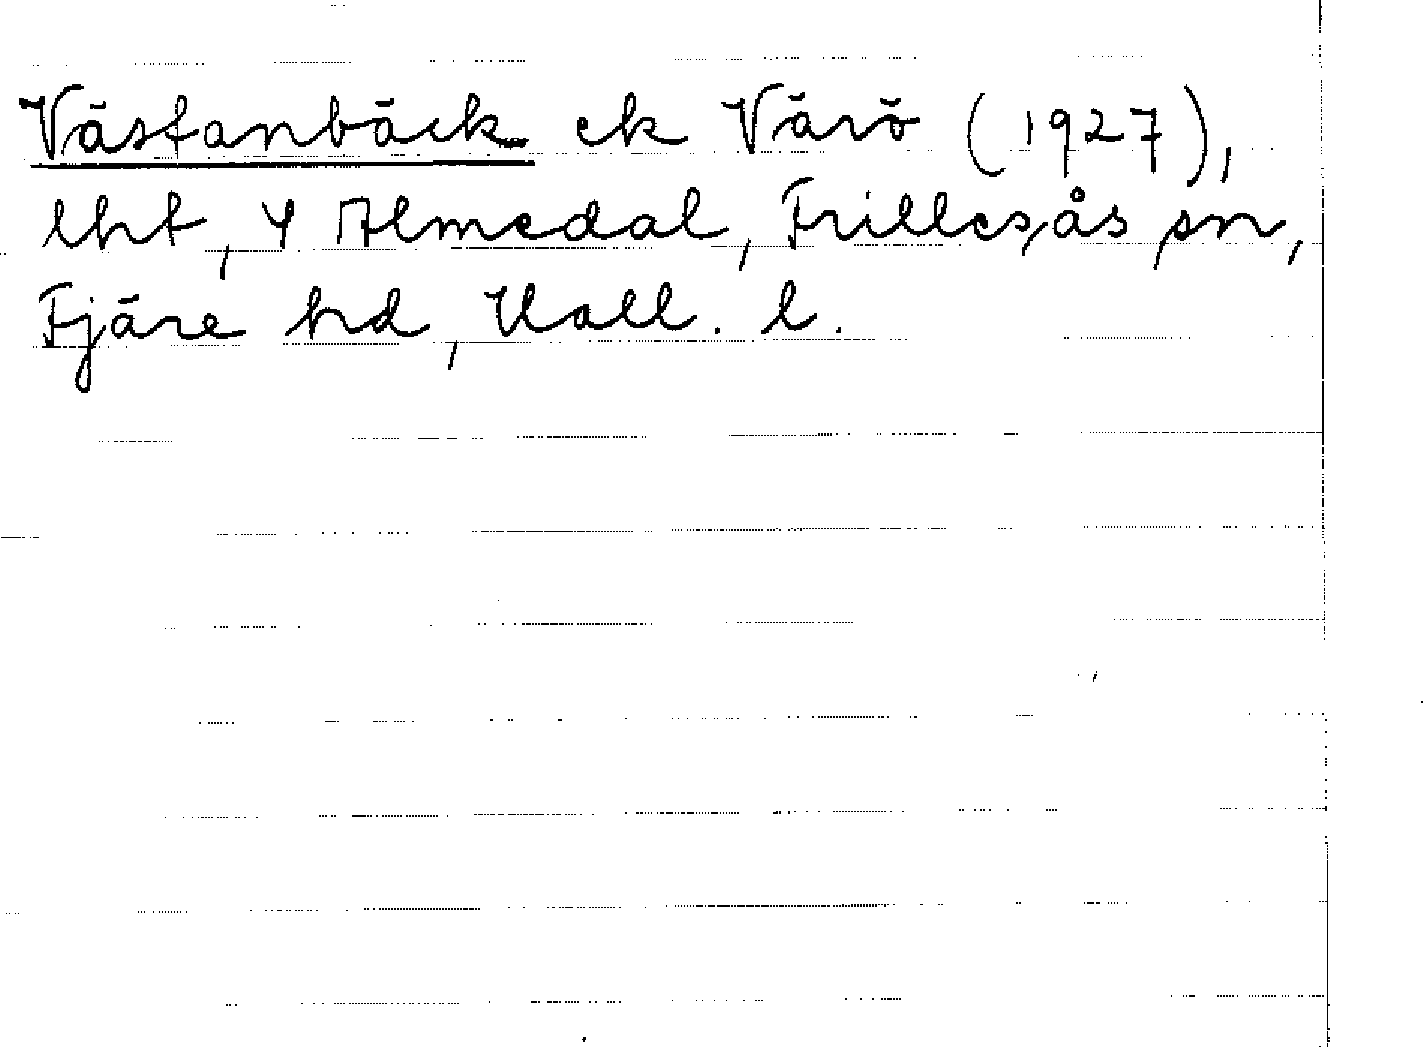 Västanbäck ek Värö (1927),
lht, 4 Almedal, Frillesås sn,
Fjäre hd, Hall. l.